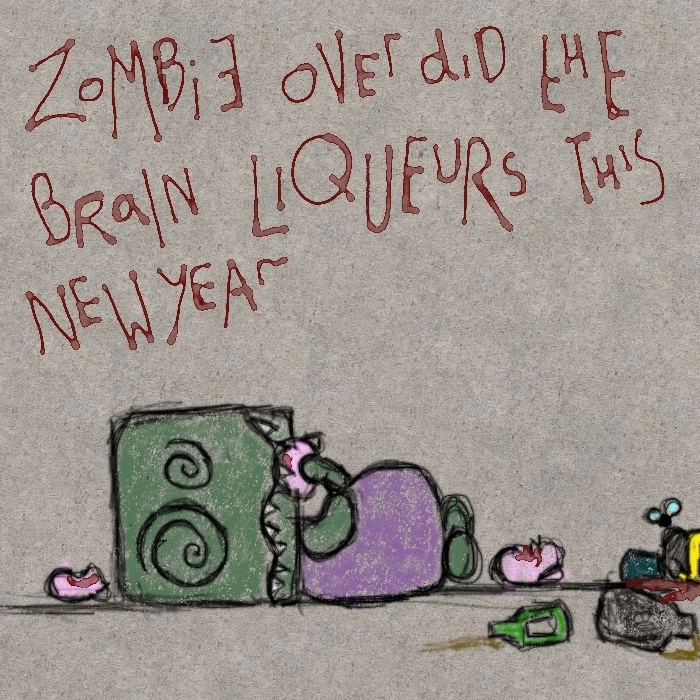 ZOMBiE OVEr diD tHE
BRaIN LiQUEURS THIS
NEW YEAr